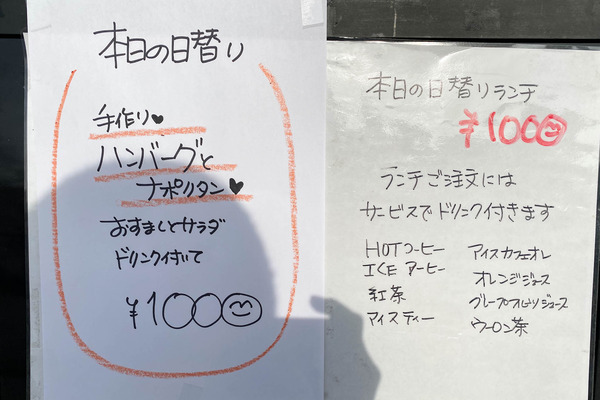 本日の日替り
手作り♥
ハンバーグと
ナポリタン♥
おすましとサラダ
ドリンク付いて
¥1000
本日の日替りランチ
¥1000
ランチご注文には
サービスでドリンク付きます
HOTコーヒー
ICEコーヒー
紅茶
アイスティー
アイスカフェオレ
オレンジジュース
グレープフルーツジュース
ウーロン茶